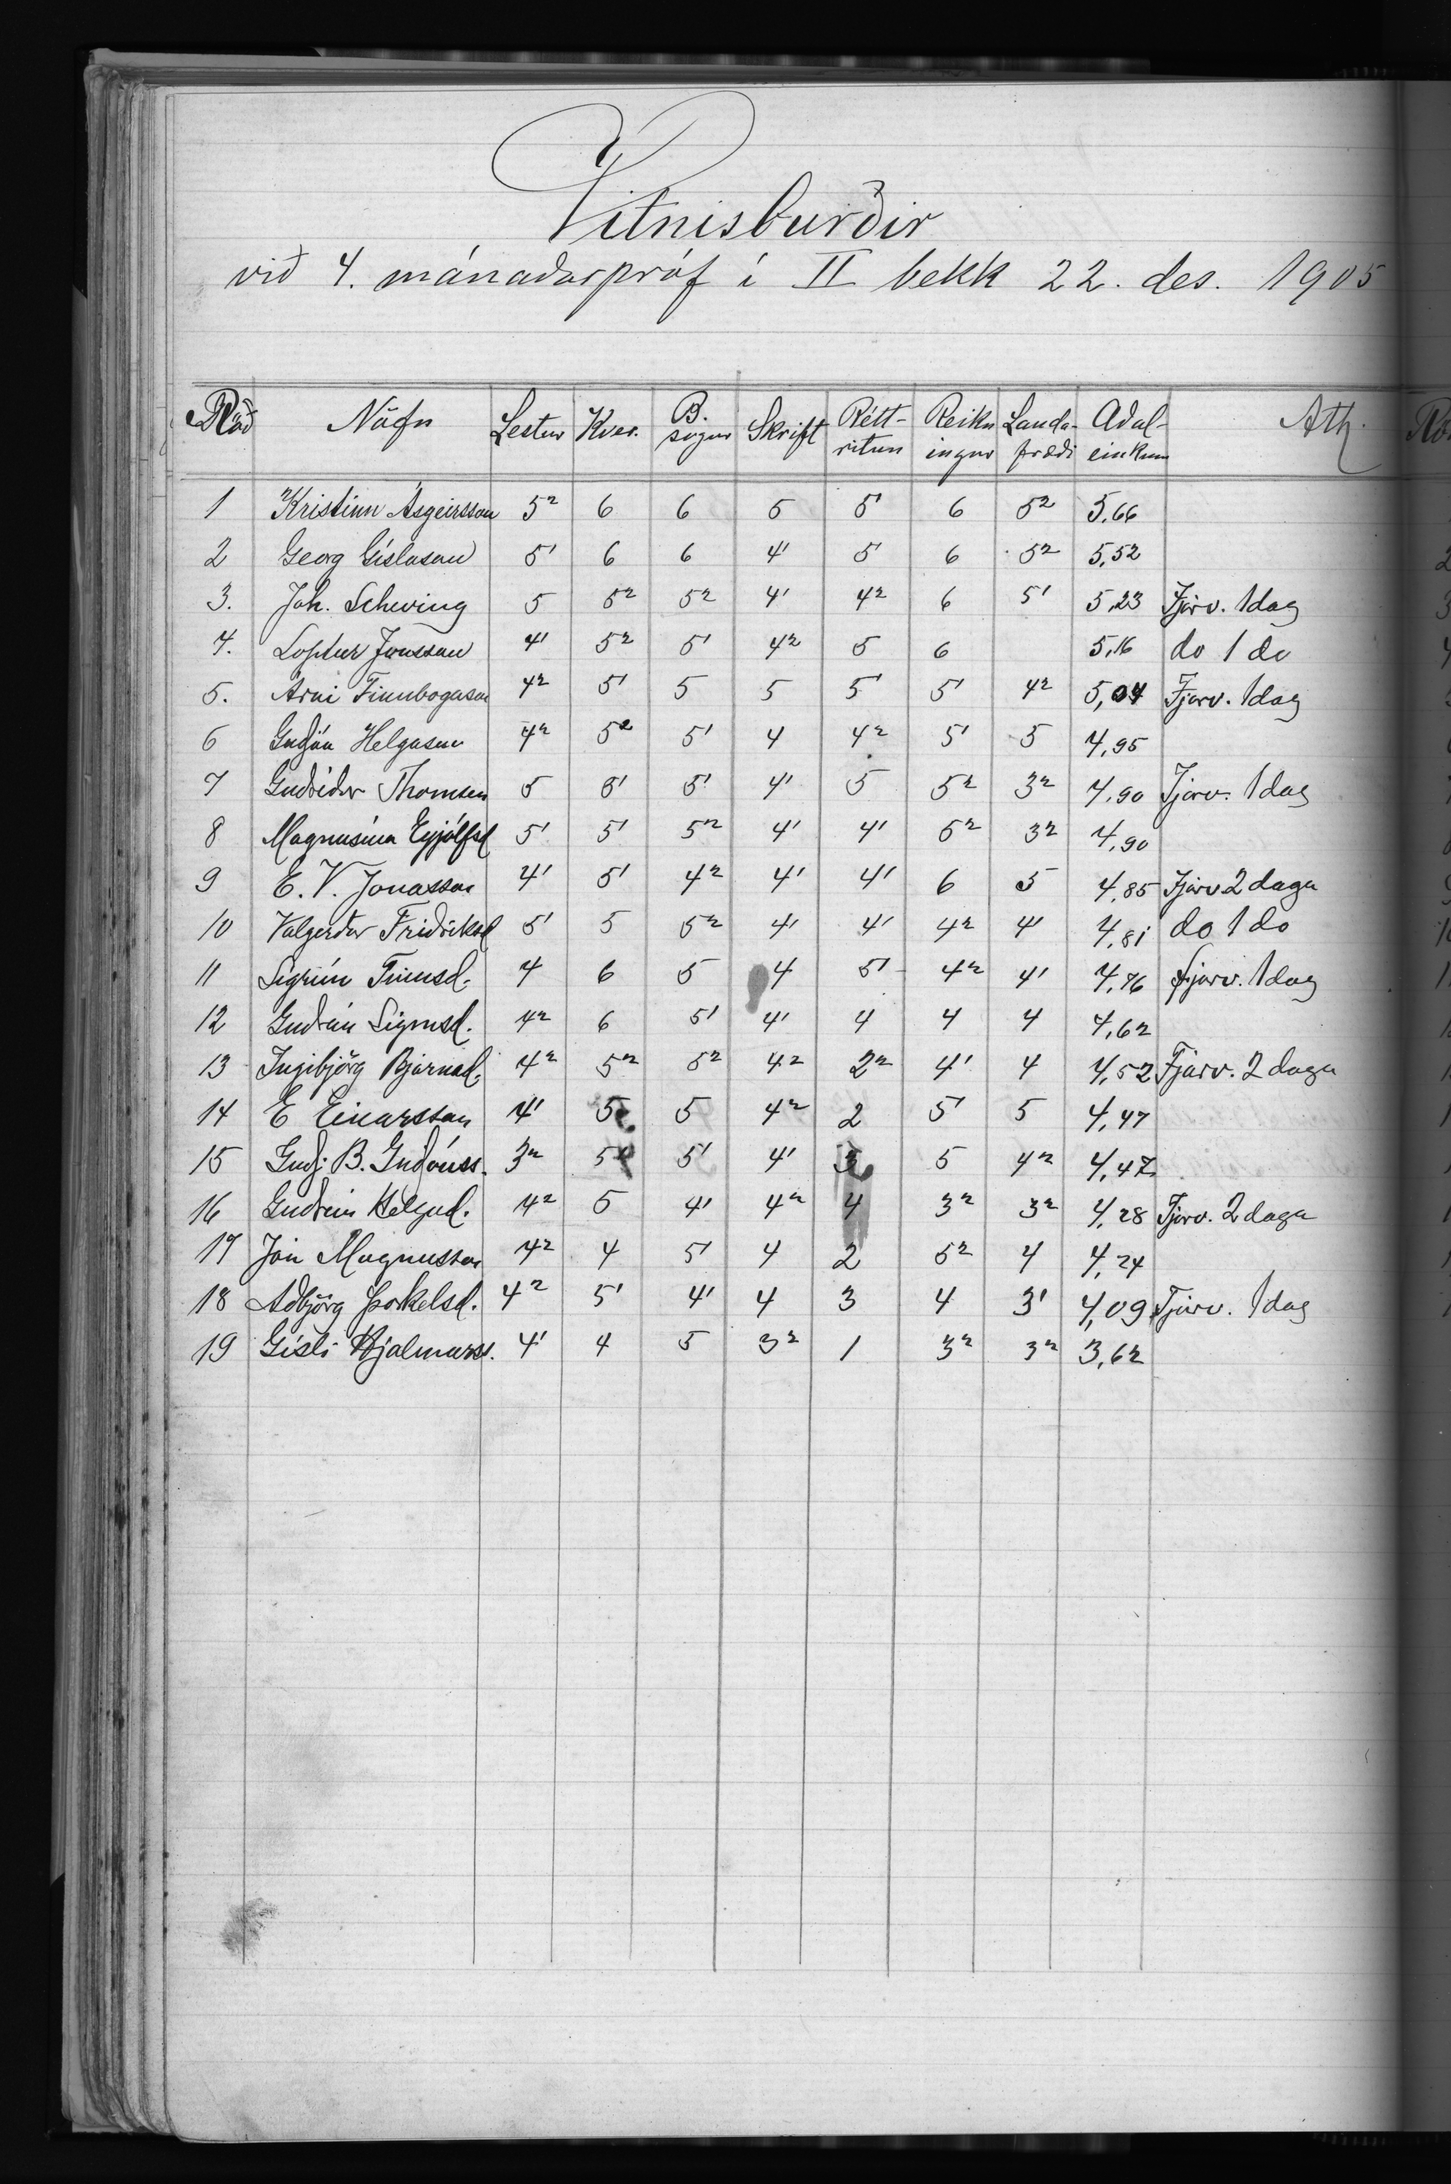 Vitnisburðir
við 4. mánaðarpróf í II bekk 22. des. 1905
Röð Nöfn Lestur Kver. B. sögur Skrift Rétt-ritun Reikn ingur Landa-fræði Aðal-einkunn Ath.
1 Kristinn Ásgeirsson 5² 6 6 5 5¹ 6 5² 5,66
2 Georg Gíslason 5¹ 6 6 4¹ 5¹ 6 5² 5,52
3. Joh. Scheving 5 5² 5² 4¹ 4² 6 5¹ 5,23 Fjarv. 1 dag
4. Loptur Jónsson 4¹ 5² 5¹ 4² 5 6 5,16 do 1 do
5. Árni Finnbogason 4² 5¹ 5 5 5¹ 5¹ 4² 5,04 Fjarv. 1 dag
6 Guðjón Helgason 4² 5² 5¹ 4 4² 5¹ 5 4,95
7 Guðríður Thomsen 5 5¹ 5¹ 4¹ 5 5² 3² 4,90 Fjarv. 1 dag
8 Magnúsína Eyjólfsd 5¹ 5¹ 5² 4¹ 4¹ 5² 3² 4,90
9 E. V. Jonasson 4¹ 5¹ 4² 4¹ 4¹ 6 5 4,85 Fjarv 2 daga
10 Valgerður Friðriksd 5¹ 5 5² 4¹ 4¹ 4² 4¹ 4,81 do 1 do
11 Sigrún Finnsd. 4 6 5 4 5¹ 4² 4¹ 4,76 fjarv. 1 dag
12 Guðrún Sigmsd. 4² 6 5¹ 4¹ 4 4 4 4,62
13 Ingibjörg Bjarnad. 4² 5² 5² 4² 2² 4¹ 4 4,52 Fjarv. 2 daga
14 E Einarsson 4¹ 5 5 4² 2 5¹ 5 4,47
15 Guðj. B. Guðjónss. 3² 5 5¹ 4¹ 3 5 4² 4,47
16 Guðrún Helgad. 4² 5 4¹ 4² 4 3² 3² 4,28 Fjarv. 2 daga
17 Jón Magnusson 4² 4 5¹ 4 2 5² 4 4,24
18 Aðbjörg Þorkelsd. 4² 5¹ 4¹ 4 3 4 3¹ 4,09 Fjarv. 1 dag
19 Gísli Hjalmarss. 4¹ 4 5 3² 1 3² 3² 3,62